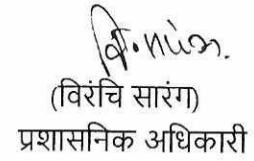 (विरंचि सारंग)
प्रशासनिक अधिकारी